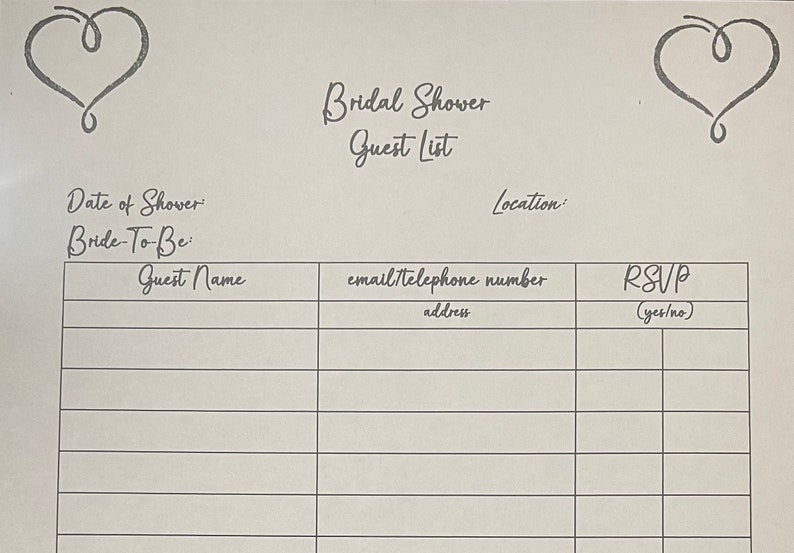 Bridal Shower
Guest List
Date of Shower: Location:
Bride-To-Be:
Guest Name email/telephone number RSVP
address (yes/no)